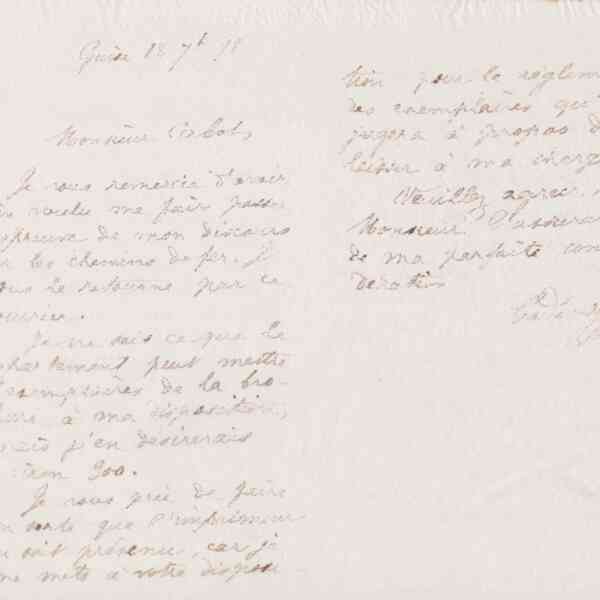 Guise 18 7b 78
Monsieur Corbon,
Je vous remercie d'avoir
voulu me faire passer
épreuve de mon discours
les chemins de fer. J
vous le retourne par ce
courrier.
Je ne sais ce que le
département peut mettre
exemplaires de la bro-
à ma disposition,
mais j'en désirerais
300.
Je vous prie de faire
sorte que l'imprimeur
soit prévenu, car je
me mets à votre disposi
tion pour le réglem
des exemplaires qu'
jugera à propos d
laisser à ma charg
Veuillez agréer,
Monsieur l'assuran
de ma parfaite con
dération